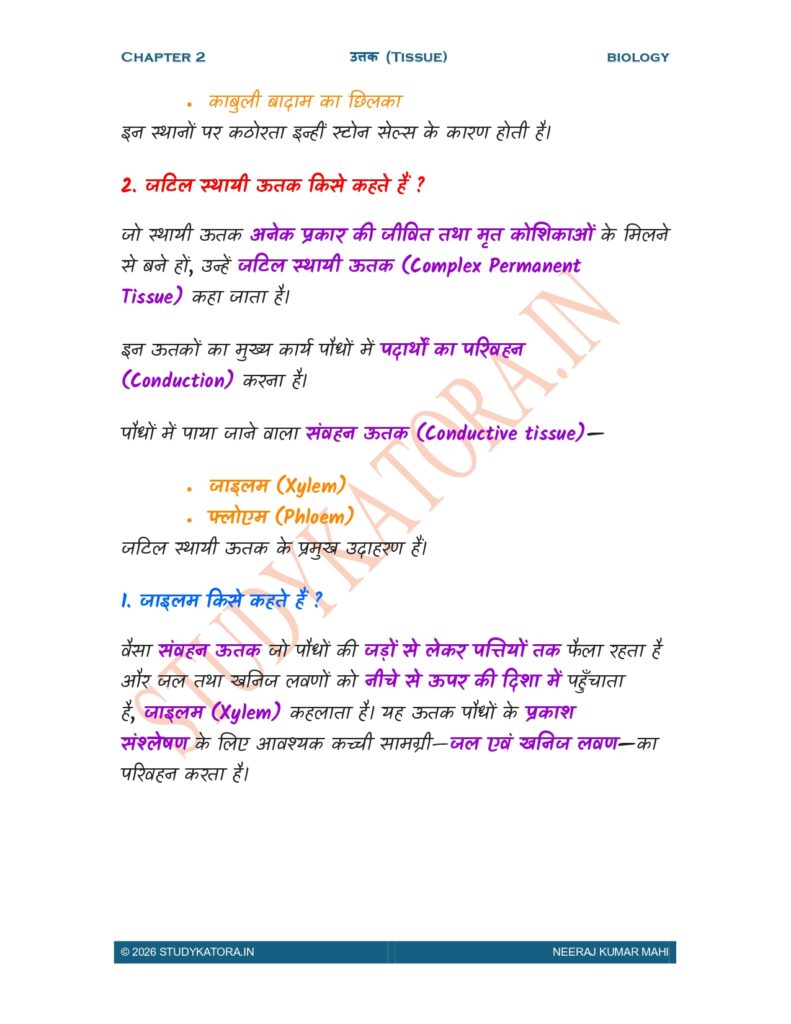 CHAPTER 2 उत्तक (TISSUE) BIOLOGY
• काबुली बादाम का छिलका
इन स्थानों पर कठोरता इन्हीं स्टोन सेल्स के कारण होती है।
2. जटिल स्थायी ऊतक किसे कहते हैं ?
जो स्थायी ऊतक अनेक प्रकार की जीवित तथा मृत कोशिकाओं के मिलने
से बने हों, उन्हें जटिल स्थायी ऊतक (Complex Permanent
Tissue) कहा जाता है।
इन ऊतकों का मुख्य कार्य पौधों में पदार्थों का परिवहन
(Conduction) करना है।
पौधों में पाया जाने वाला संवहन ऊतक (Conductive tissue)—
• जाइलम (Xylem)
• फ्लोएम (Phloem)
जटिल स्थायी ऊतक के प्रमुख उदाहरण हैं।
1. जाइलम किसे कहते हैं ?
वैसा संवहन ऊतक जो पौधों की जड़ों से लेकर पत्तियों तक फैला रहता है
और जल तथा खनिज लवणों को नीचे से ऊपर की दिशा में पहुँचाता
है, जाइलम (Xylem) कहलाता है। यह ऊतक पौधों के प्रकाश
संश्लेषण के लिए आवश्यक कच्ची सामग्री—जल एवं खनिज लवण—का
परिवहन करता है।
STUDYKATORA.IN
© 2026 STUDYKATORA.IN NEERAJ KUMAR MAHI